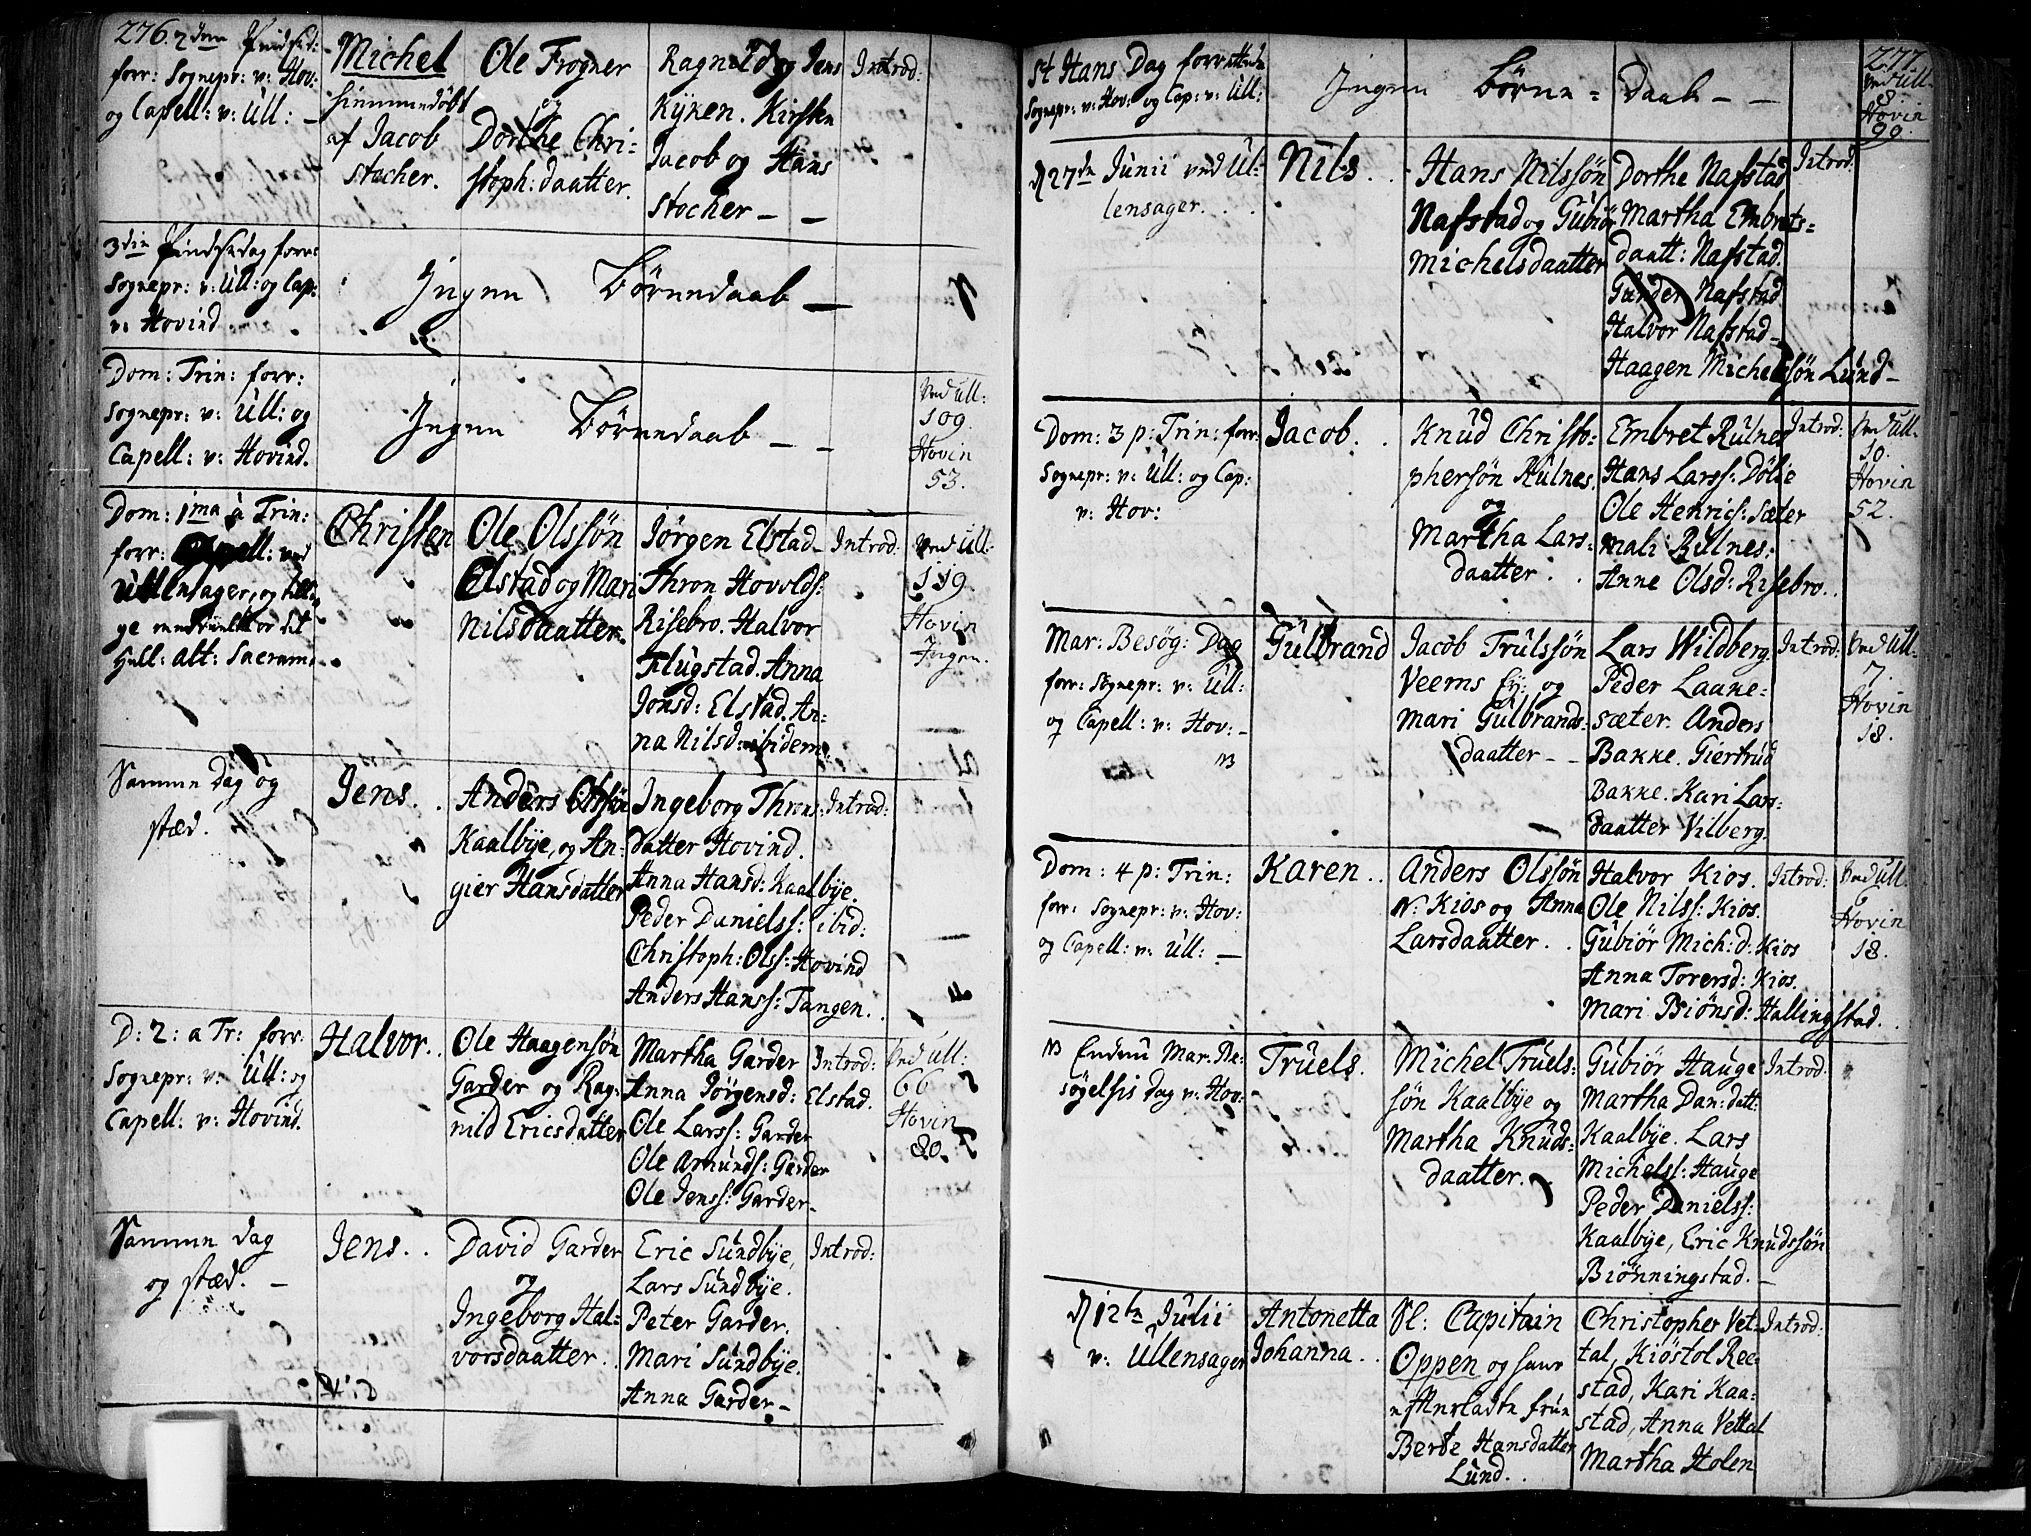 276.
2den Pindsed:
forr: Sognepr: v: Hov:
og Capell: v: Ull: –
Michel
hiemmedöbt
af Jacob
Stocher.
Ole Frogner
og
Dorthe Chri=
stoph: daatter.
Ragnild og Jens
Kÿken. Kirsten
Jacob og Hans
Stocher – –
Introd:
3die Pindsedag forr:
Sognepr: v: Ull: og Cap:
v: Hovind
Ingen Börnedaab –
Dom: Trin: forr:
Sognepr: v: Ull: og
Capell: v: Hovind.
Ingen Börnedaab – –
Ved Ull:
109.
Hovin
53.
Dom: 1ma à Trin:
forr: Capell: ved
Ullensager, og
Hell: Alt: Sacram:
Christen
Ole Olssön
Elstad og Mari
Nilsdaatter.
Jörgen Elstad
Thron Hovolds:
Risebro. Halvor
Flügstad. Anna
Jonsd: Elstad. An=
na Nilsd: ibidem.
Introd:
Ved Ull:
119.
Hovin
Ingen.
Samme Dag og
stæd.
Jens.
Anders Olssön
Kaalbÿe, og An=
gier Hansdatter
Ingeborg Throns:
datter Hovind.
Anna Hansd: Kaalbÿe.
Peder Danielss: ibid:
Christoph: Olss: Hovind
Anders Hanss: Tangen.
Introd:
D: 2: a Tr: forr:
Sognepr: v: Ull: og
Capell: v: Hovind.
Halvor.
Ole Haagensön
Garder og Rag=
nild Ericsdatter
Martha Garder
Anna Jörgensd: Elstad.
Ole Larss: Garder
Ole Amunds: Garder
Ole Jenss: Garder
Introd:
Ved Ull:
66
Hovin
80.
Samme dag
og stæd. –
Jens.
David Garder
og
Ingeborg Hal=
vorsdaatter.
Eric Sundbÿe,
Lars Sundbÿe.
Peter Garder.
Mari Sundbÿe.
Anna Garder –
Introd:
277.
St Hans Dag forrettede
Sognepr: v: Hov: og Cap: v: Ull:
Ingen Börne = daab – –
Ved Ull.
8.
Hovin
99.
D 27de Junii ved Ul=
lensager.
Nils.
Hans Nilssön
Nafstad og Gubiör
Michelsdaatter
Dorthe Nafstad
Martha Embrets=
daatt: Nafstad.
Gunder Nafstad
Halvor Nafstad
Haagen Michelssön Lund –
Introd:
Dom: 3 p: Trin: forr:
Sognepr: v: Ull: og Cap:
v: Hov:
Jacob.
Knud Christo=
phersön Rulnes.
og
Martha Lars=
daatter.
Embret Rulnes
Hans Larss: Dölie
Ole Henrics: Sæter
Mali Rulnes:
Anne Olsd: Risebro.
Introd:
Ved Ull.
10.
Hovin
52.
Mar: Besög: Dag
forr: Sognepr: v: Ull:
og Capell: v: Hov: –
Gulbrand
Jacob Trulssön
Veems Ey: og
Mari Gulbrands=
daatter – –
Lars Wildberg.
Peder Laane=
sæter. Anders
Bakke. Giertrud
Bakke. Kari Lars=
daatter Vilberg.
Introd:
Ved Ull:
7.
Hovin
18.
Dom: 4 p: Trin:
forr: Sognepr: v: Hov:
og Capell: v: Ull: –
Karen.
Anders Olssön
N: Kios og Anna
Larsdaatter.
Halvor Kios.
Ole Nilss: Kios.
Gubiör Mich: d: Kios
Anna Torersd: Kios.
Mari Biönsd: Hallingstad.
Introd:
Ved Ull.
6
Hovin
18.
NB Endnu Mar. Be=
søgelsis Dag v: Hov:
Truels.
Michel Truels=
sön Kaalbÿe og
Martha Knuds=
daatter.
Gubiör Hauge
Martha Dan: datt:
Kaalbÿe. Lars
Michelss: Hauge
Peder Danielss:
Kaalbÿe, Eric Knudssön
Biönningstad. –
Introd:
D 12te Julii
v: Ullensager
Antonetta
Johanna.
Sl: Capitain
Oppen og hans
efterladte frue
Berte Hansdatter
Lund.
Christopher Vet=
tal, Kiöstol Ree=
stad, Kari Kaa=
stad, Anna Vettal
Martha Holen
Introd: